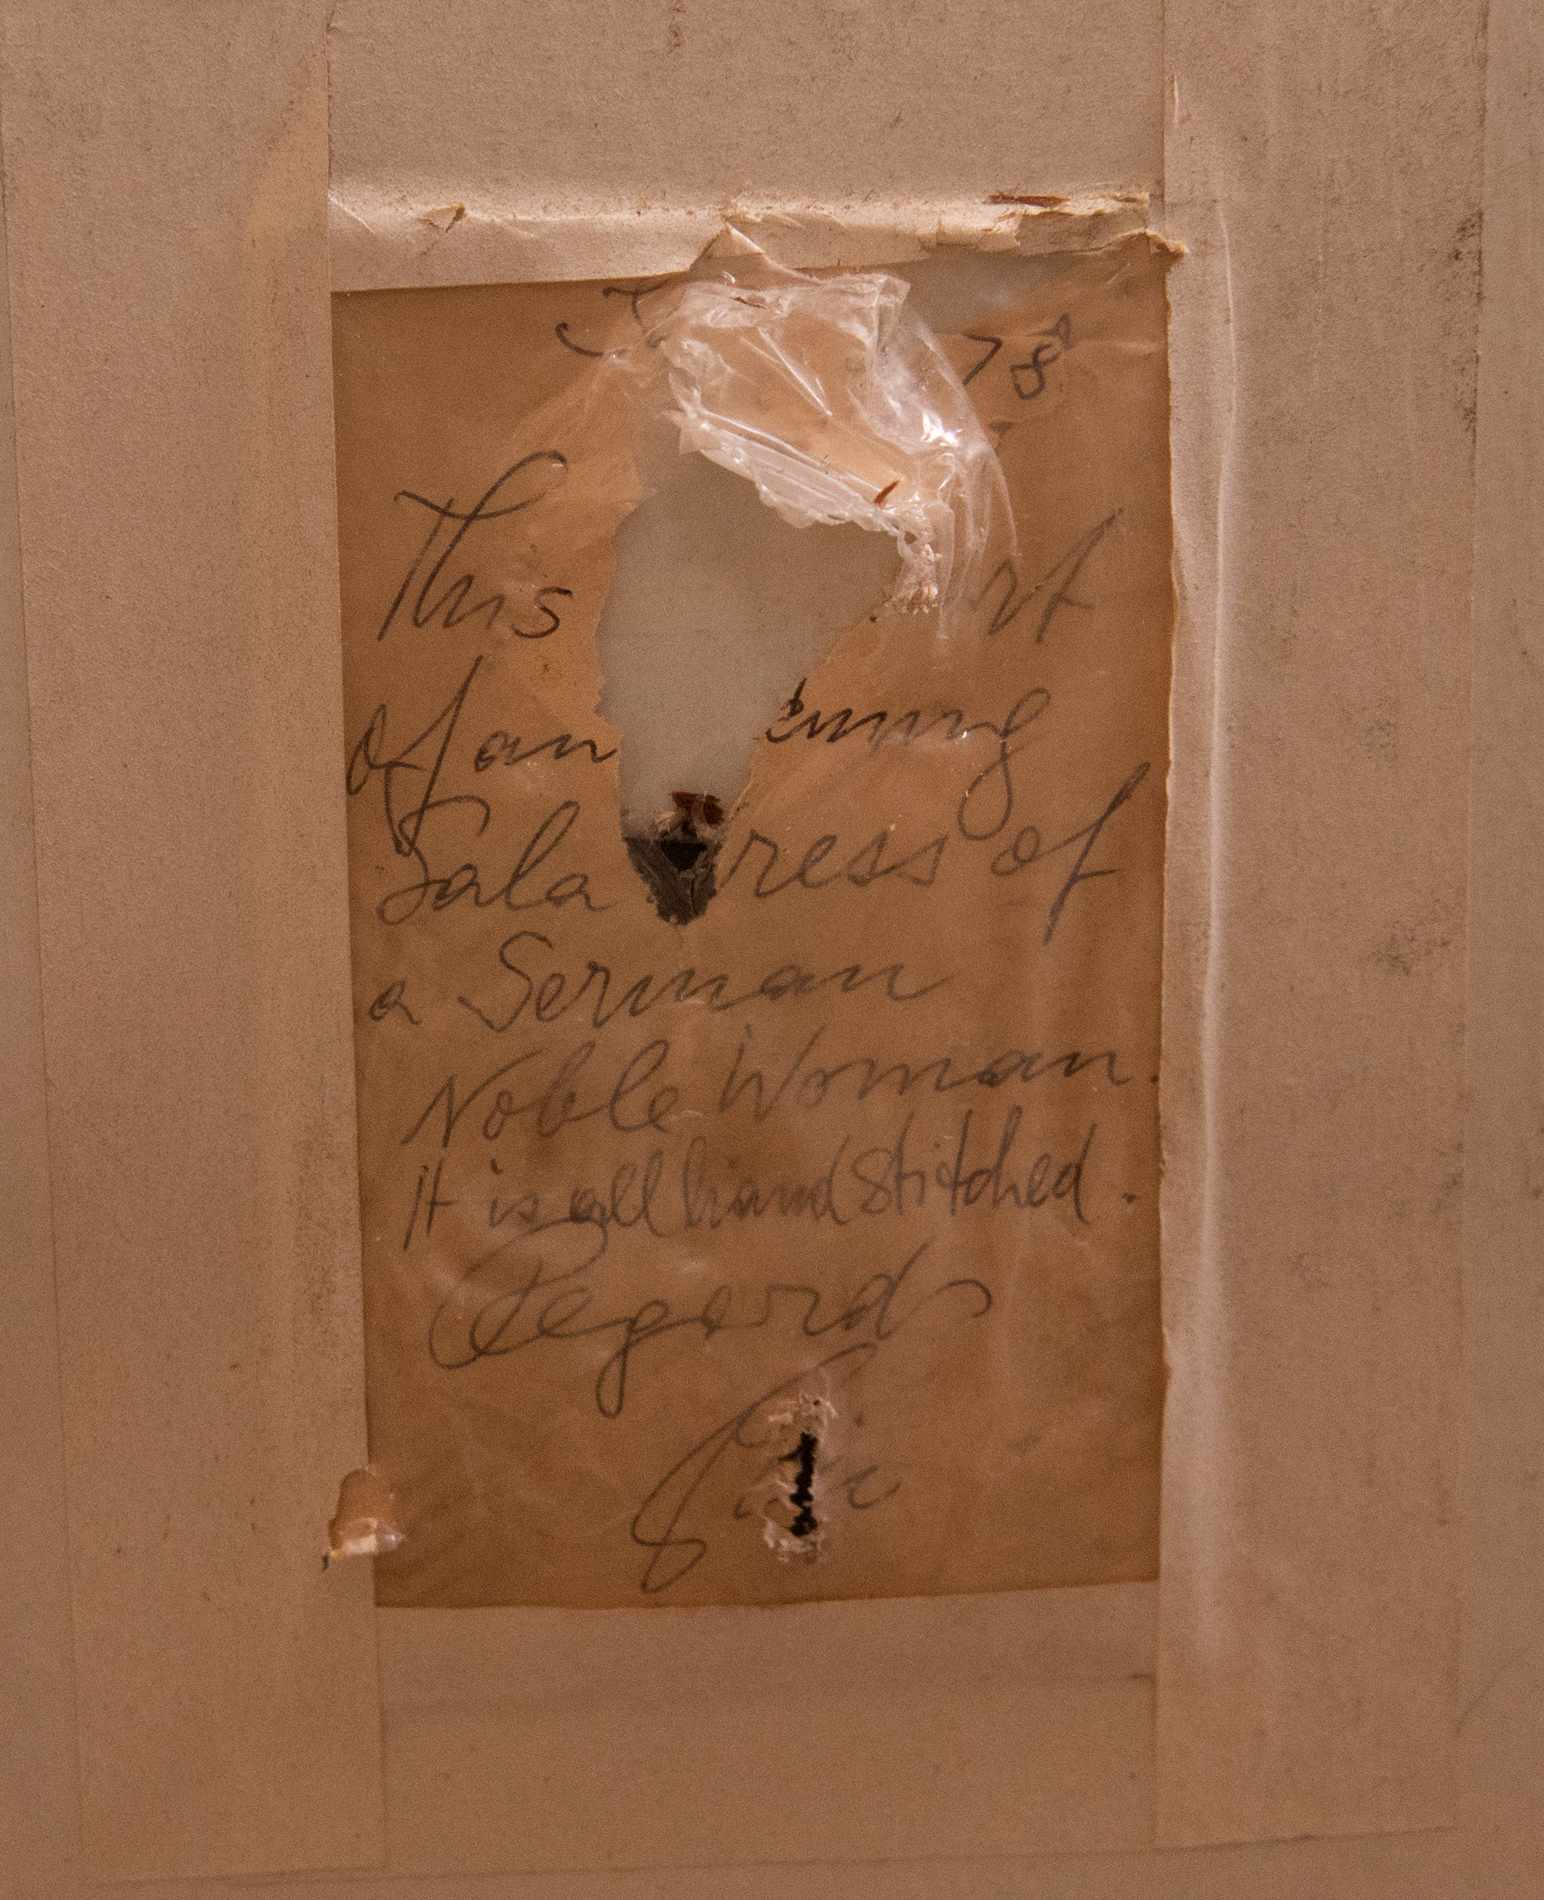 78
This rt
of an ening
Gala ress of
a German
Noble Woman.
It is all hand stitched.
Regards